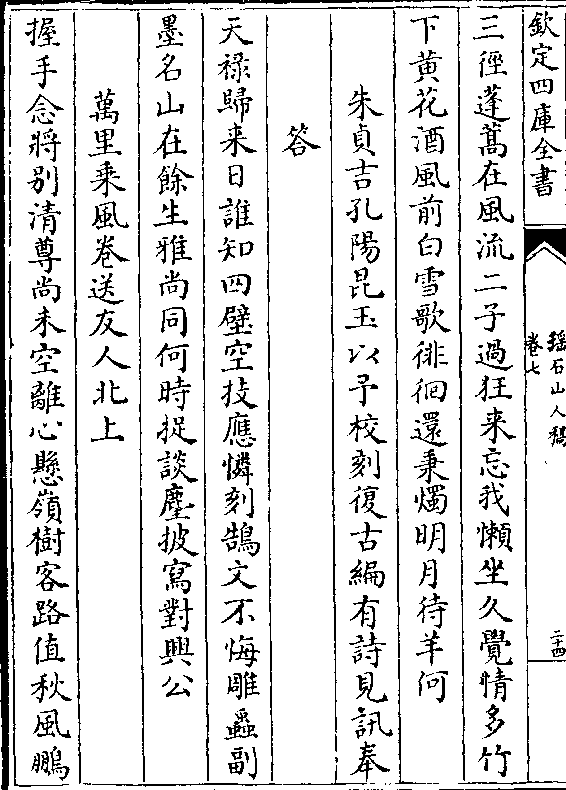 欽定四庫全書
瑤石山人稿
卷七
二十四
三徑蓬蒿在風流二子過狂来忘我懶坐久覺情多竹
下黄花酒風前白雪歌徘徊還秉燭明月待羊何
朱貞吉孔陽昆玉以予校刻復古編有詩見訊奉
答
天禄歸来日誰知四壁空技應憐刻鵠文不悔雕蟲副
墨名山在餘生雅尚同何時捉談麈披寫對興公
萬里乘風卷送友人北上
握手念將别清尊尚未空離心懸嶺樹客路值秋風鵬